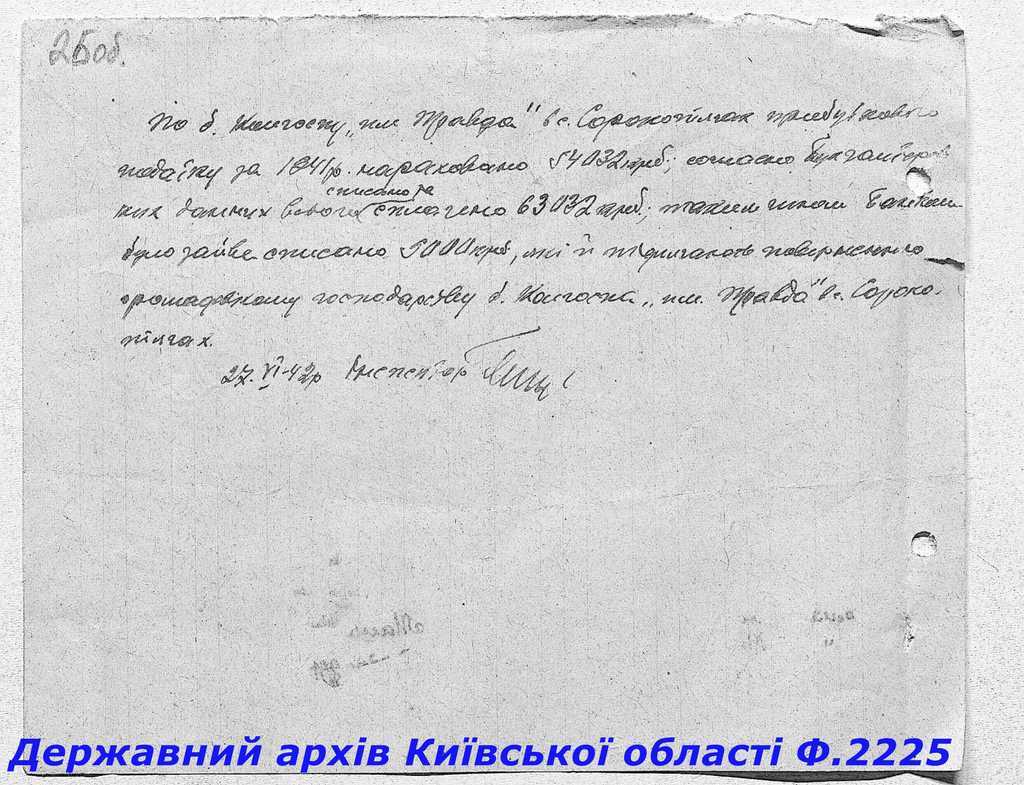 25об.
По б. Колгоспу „им Правда" в с. Сорокотягах прибуткового
податку за 1941р. нараховано 54032 крб; согласно Бухгалтерсь
ких данних всього списано та сплачено 63032 крб; таким чином Банком
було зайве списано 9000 крб, які й підлягають поверненню
громадському господарству б. Колгоспа „им. Правда" в с. Сороко-
тягах.
27.VI-42р Інспектор
Державний архів Київської області Ф.2225